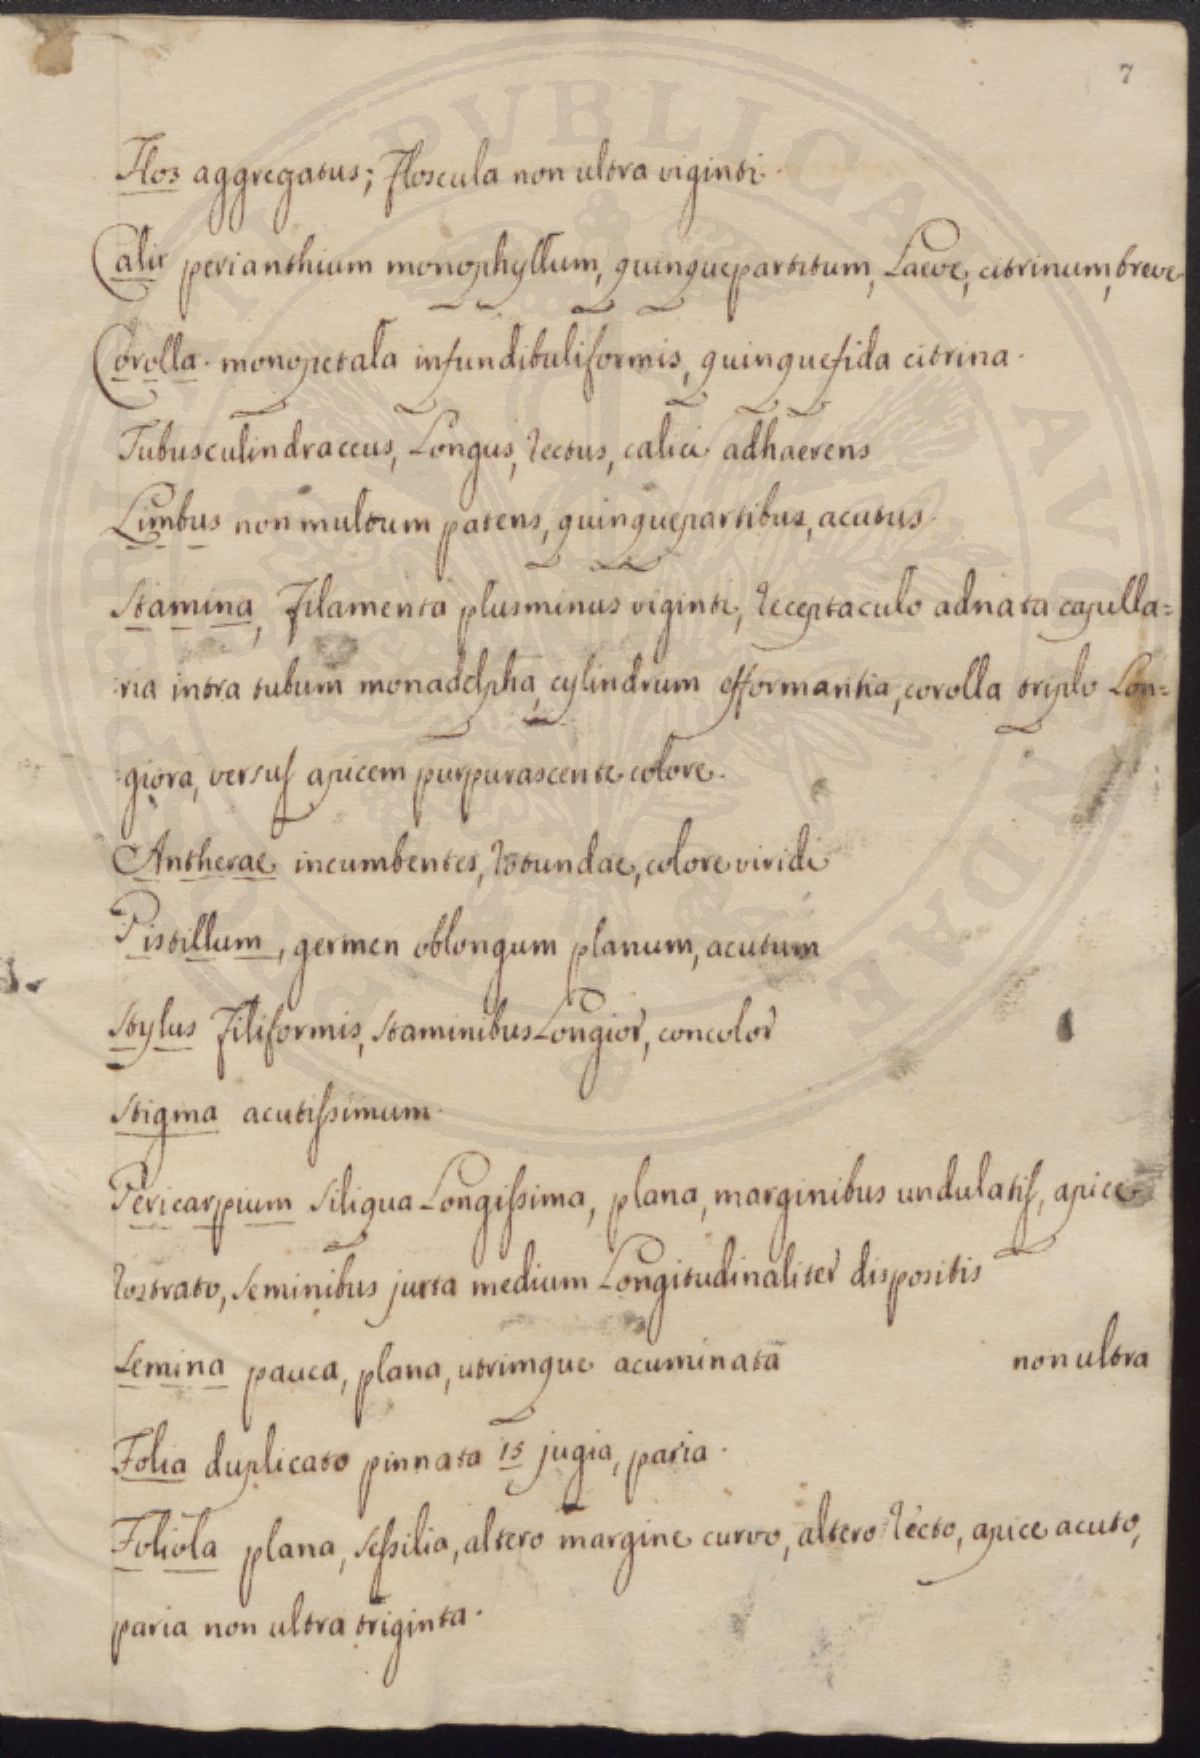 7
Flos aggregatus; Floscula non ultra viginti.
Calix perianthium monophyllum, quinquepartitum, Laeve, citrinum, breve
Corolla. monopetala infundibuliformis, quinquefida citrina.
Tubus culindraceus, Longus, rectus, calici adhaerens
Limbus non multum patens, quinquepartibus, acutus.
Stamina, Filamenta plusminus viginti, receptaculo adnata capilla=
ria intra tubum monadelpha, cylindrum efformantia, corolla triplo Lon=
giora, versus apicem purpurascente colore.
Antherae incumbentes, rotundae, colore viridi
Pistillum, germen oblongum planum, acutum
Stylus Filiformis, staminibus Longior, concolor
Stigma acutissimum.
Pericarpium siliqua Longissima, plana, marginibus undulatis, apice
rostrato, seminibus juxta medium Longitudinaliter dispositis
Semina pauca, plana, utrimque acuminata non ultra
Folia duplicato pinnata 15 jugia, paria.
Foliola plana, sessilia, altero margine curvo, altero recto, apice acuto,
paria non ultra triginta.
PERICIT PVBLICAE AVGENDAE